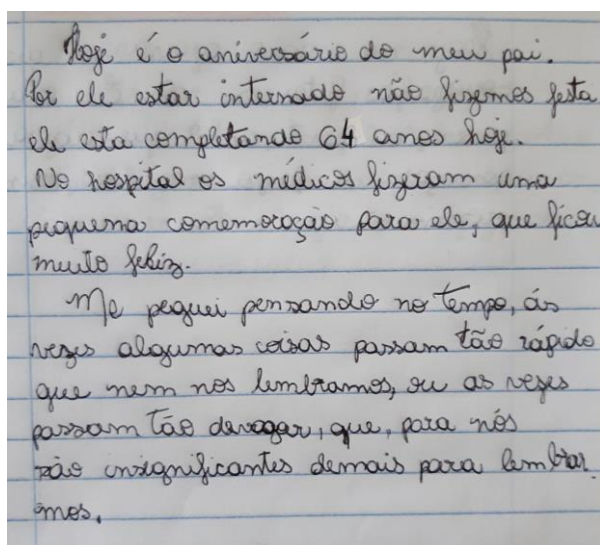 Hoje é o aniversário do meu pai.
Por ele estar internado não fizemos festa
ele esta completando 64 anos hoje.
No hospital os médicos fizeram uma
pequena comemoração para ele, que ficou
muito feliz.
Me peguei pensando no tempo, ás
vezes algumas coisas passam tão rápido
que nem nos lembramos, ou as vezes
passam tão devagar, que, para nós
são insignificantes demais para lembrar
mos.